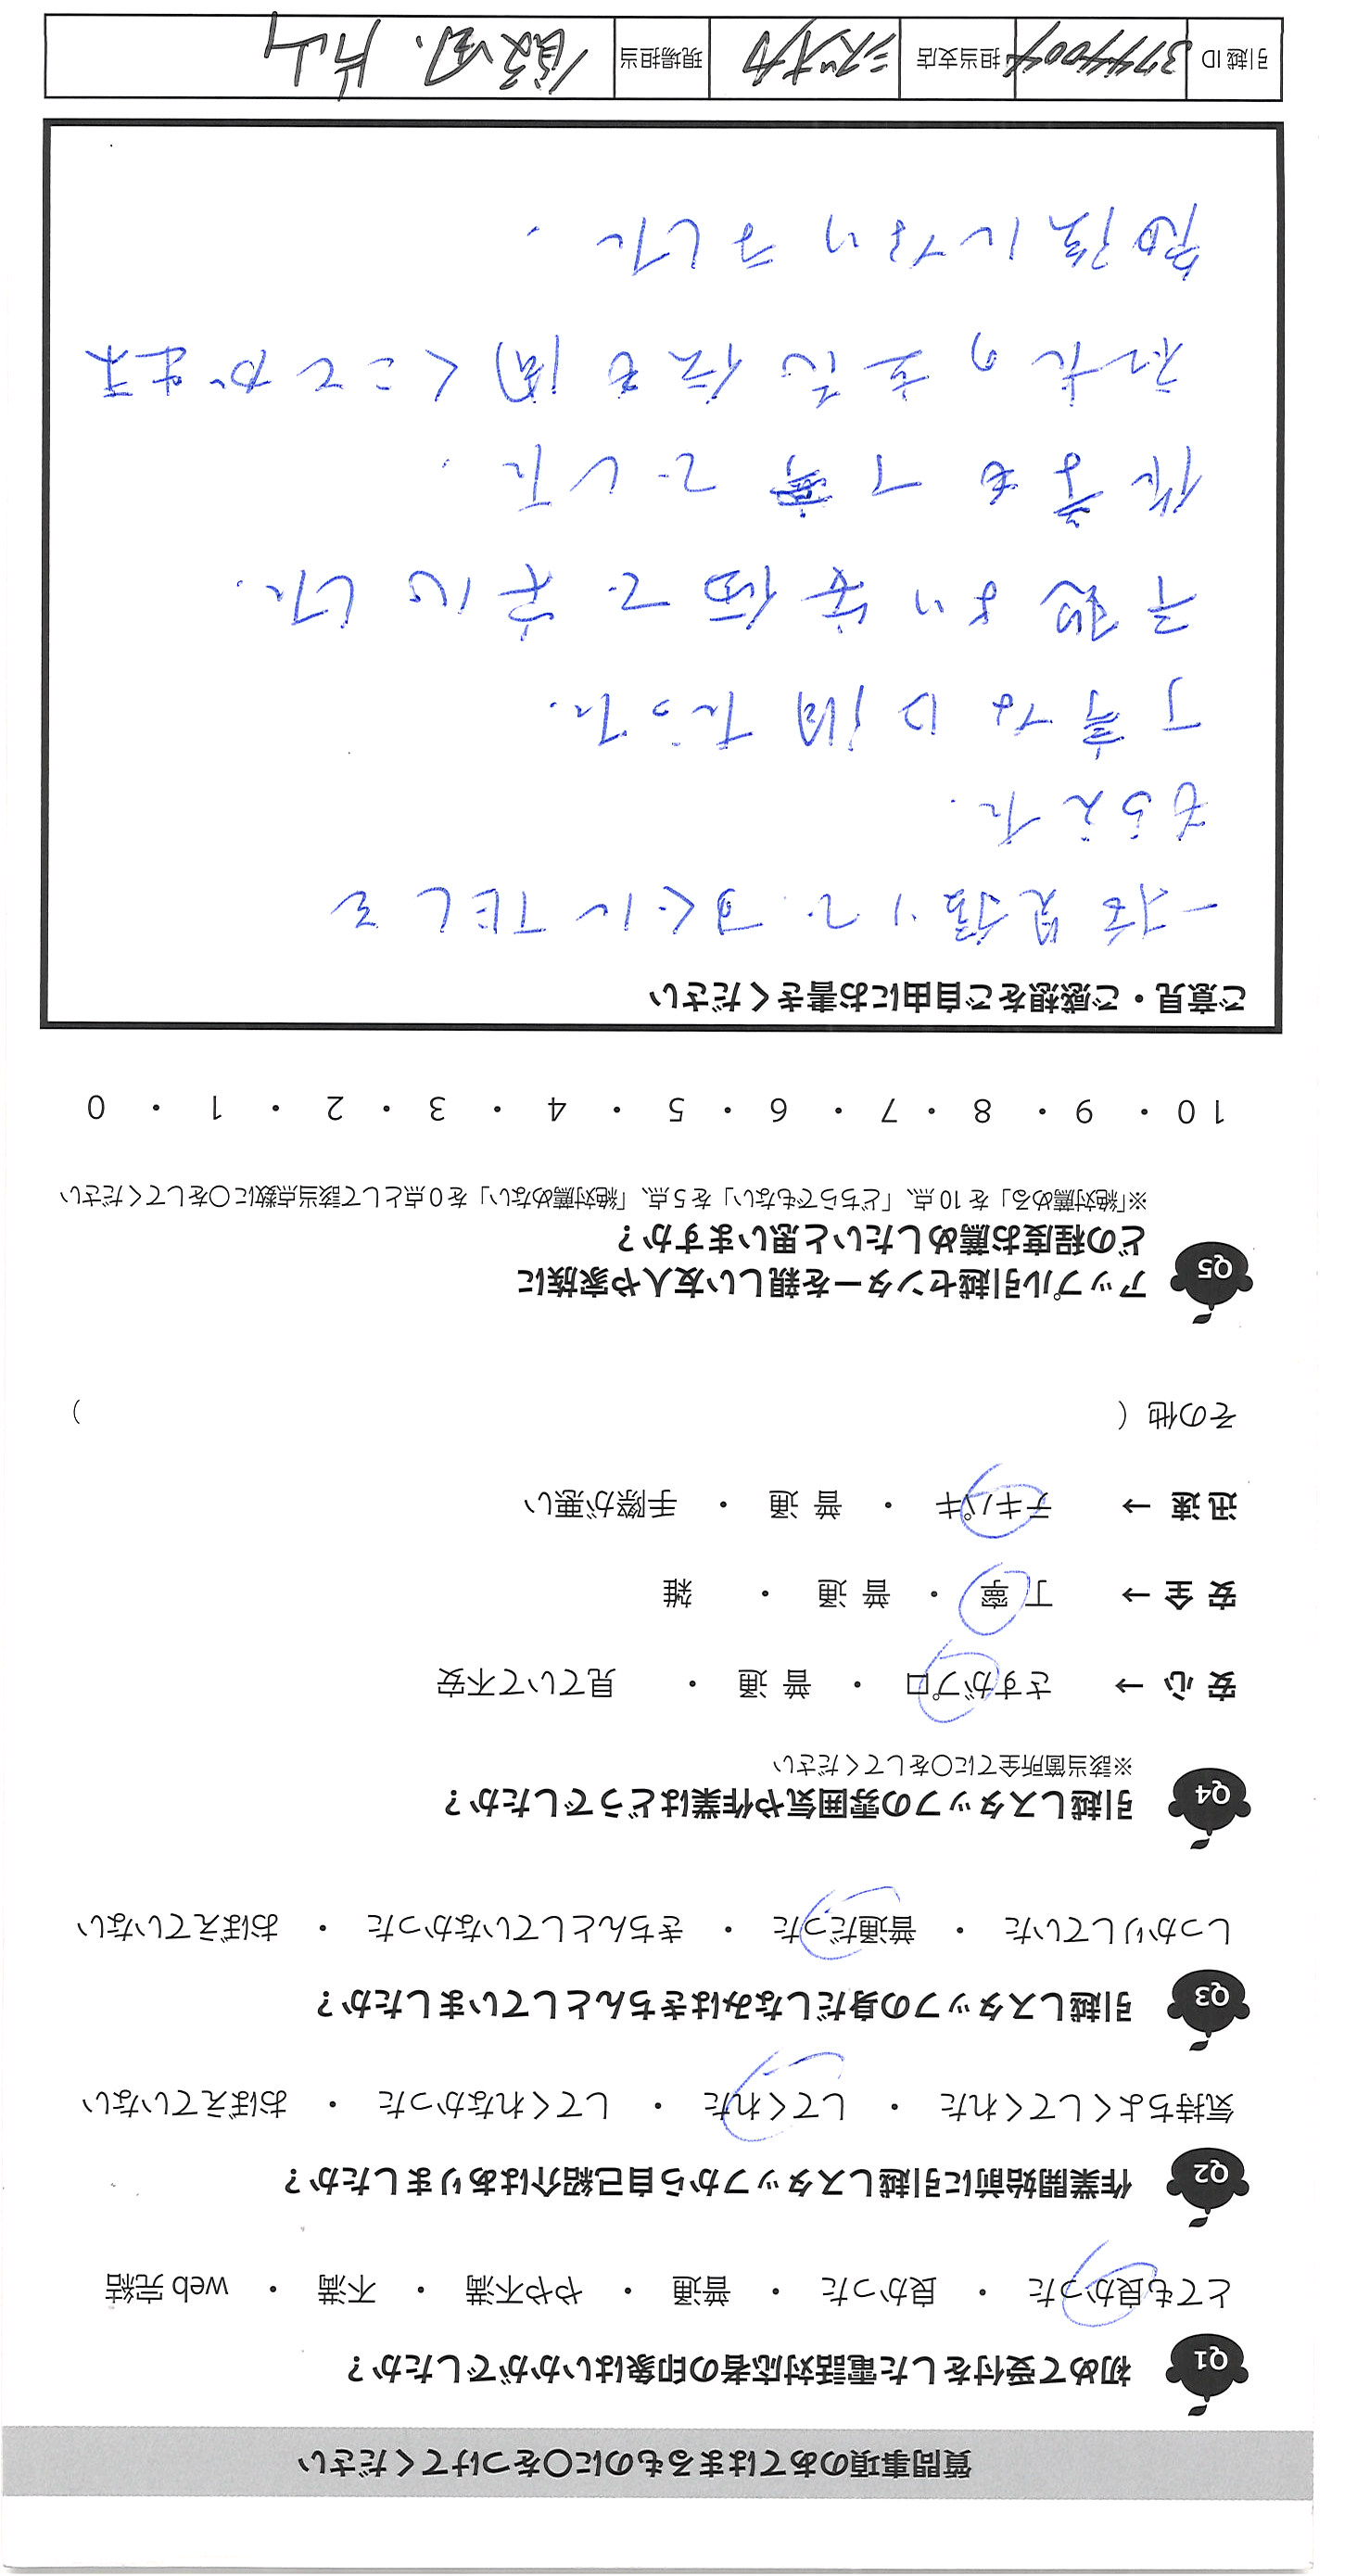 質問事項のあてはまるものに〇をつけてください
Q1 初めて受付をした電話対応者の印象はいかがでしたか？
とても良かった ・ 良かった ・ 普通 ・ やや不満 ・ 不満 ・ web 完結
Q2 作業開始前に引越しスタッフから自己紹介はありましたか？
気持ちよくしてくれた ・ してくれた ・ してくれなかった ・ おぼえていない
Q3 引越しスタッフの身だしなみはきちんとしていましたか？
しっかりしていた ・ 普通だった ・ きちんとしていなかった ・ おぼえていない
Q4 引越しスタッフの雰囲気や作業はどうでしたか？
※該当箇所全てに〇をしてください
安 心 → さすがプロ ・ 普 通 ・ 見ていて不安
安 全 → 丁 寧 ・ 普 通 ・ 雑
迅 速 → テキパキ ・ 普 通 ・ 手際が悪い
その他（ ）
Q5 アップル引越センターを親しい友人や家族に
どの程度お薦めしたいと思いますか？
※「絶対薦める」を 10 点、「どちらでもない」を 5 点、「絶対薦めない」を 0 点として該当点数に〇をしてください
10 ・ 9 ・ 8 ・ 7 ・ 6 ・ 5 ・ 4 ・ 3 ・ 2 ・ 1 ・ 0
ご意見・ご感想をご自由にお書きください
一括見積りで すぐに TELを
もらえた.
丁寧な口調だった.
予想より安価で安心した.
作業も丁寧でした.
お金の も聞くことが出来
勉強になりました.
引越 ID 3744004 担当支店 現場担当 飯田、片山